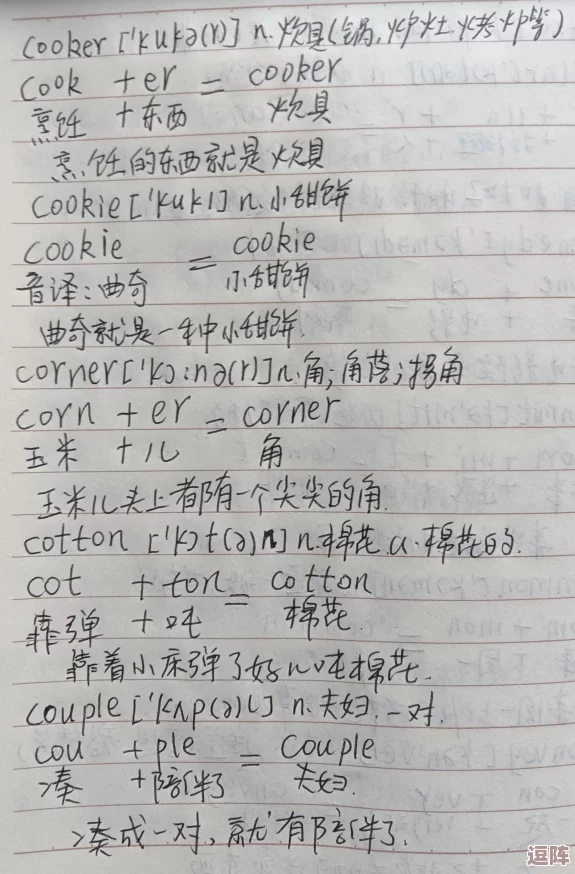 cooker ['kukə(r)] n.炊具(锅,炉灶,烤炉等)
cook + er = cooker
烹饪 + 东西 炊具
烹饪的东西就是炊具
cookie ['kuki] n.小甜饼
cookie = cookie
音译:曲奇 小甜饼
曲奇就是一种小甜饼.
corner ['kɔ:nə(r)] n.角;角落;拐角
corn + er = corner
玉米 + 儿 角
玉米儿头上都有一个尖尖的角.
cotton ['kɔt(ə)n] n.棉花 a.棉花的.
cot + ton = cotton
靠弹 + 吨 棉花.
靠着小床弹了好几吨棉花.
couple ['kʌp(ə)l] n.夫妇 一对.
cou + ple = couple
凑 + 陪伴了 夫妇.
凑成一对,就有陪伴了.
逗阵